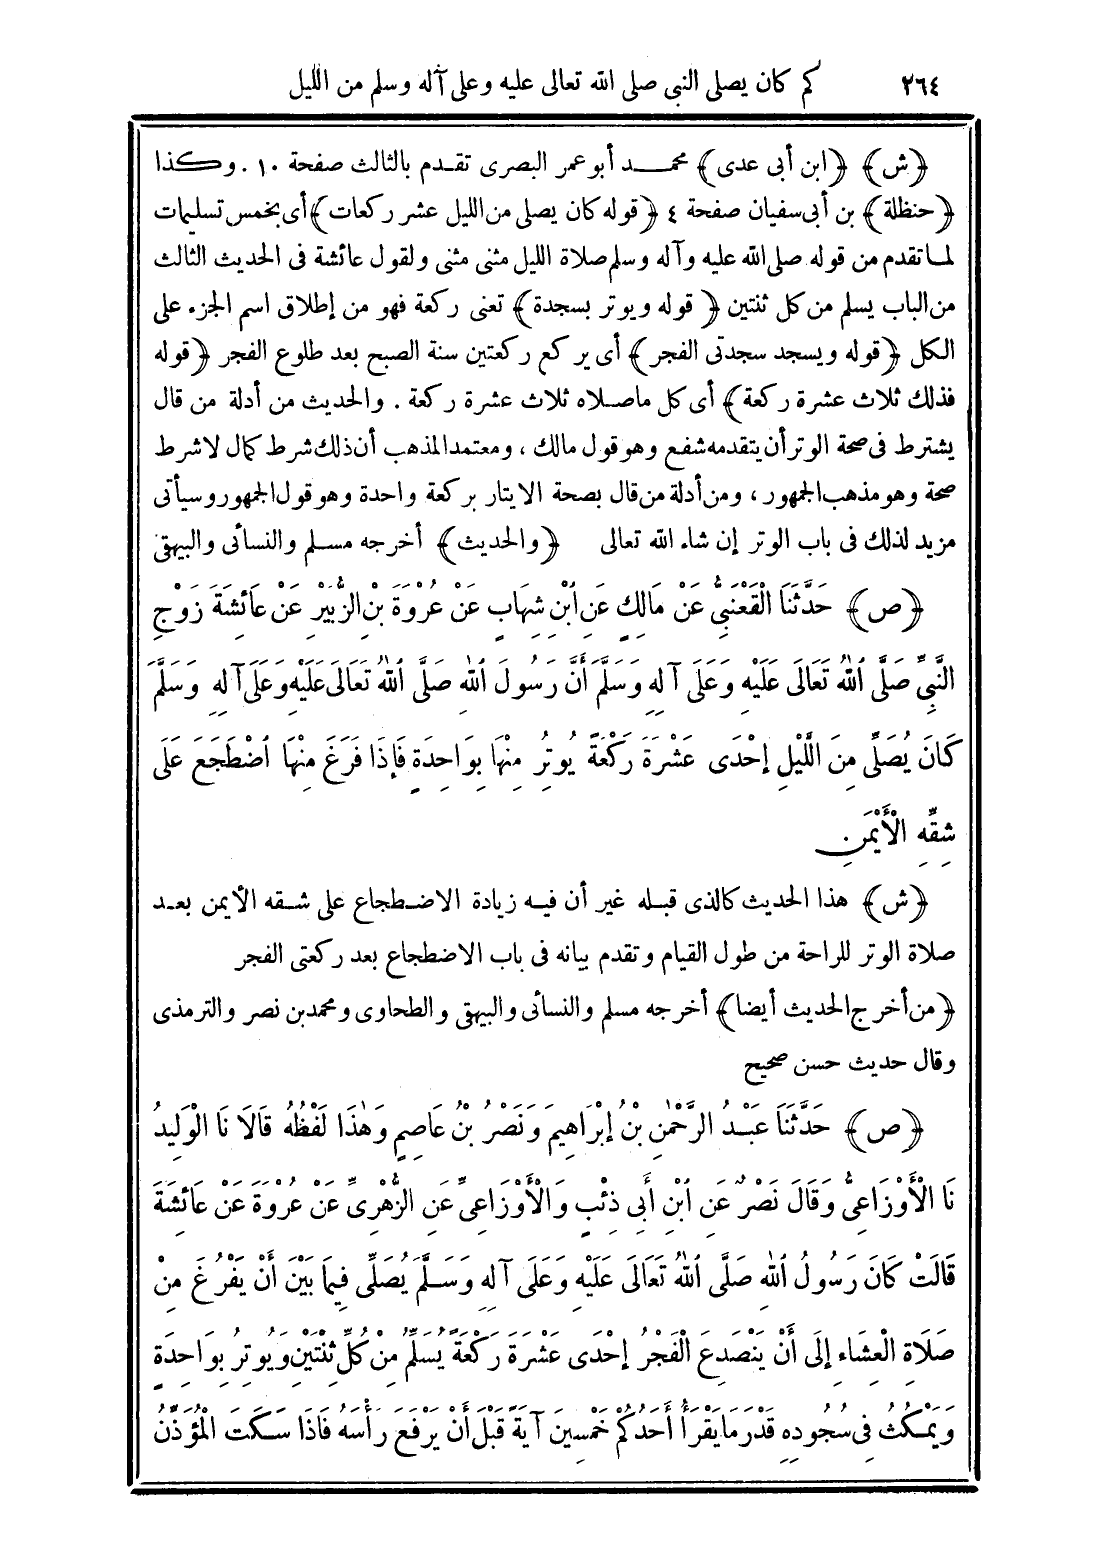 ٢٦٤ كم كان يصلى النبى صلى الله تعالى عليه وعلى آله وسلم من الليل
﴿ش﴾ ﴿ابن أبى عدى﴾ محمد أبو عمر البصرى تقدم بالثالث صفحة ١٠. وكذا
﴿حنظلة﴾ بن أبى سفيان صفحة ٤ ﴿قوله كان يصلى من الليل عشر ركعات﴾ أى بخمس تسليمات
لما تقدم من قوله صلى الله عليه وآله وسلم صلاة الليل مثنى مثنى ولقول عائشة فى الحديث الثالث
من الباب يسلم من كل ثنتين ﴿قوله ويوتر بسجدة﴾ تعنى ركعة فهو من إطلاق اسم الجزء على
الكل ﴿قوله ويسجد سجدتى الفجر﴾ أى يركع ركعتين سنة الصبح بعد طلوع الفجر ﴿قوله
فذلك ثلاث عشرة ركعة﴾ أى كل ماصلاه ثلاث عشرة ركعة . والحديث من أدلة من قال
يشترط فى صحة الوتر أن يتقدمه شفع وهو قول مالك ، ومعتمد المذهب أن ذلك شرط كمال لا شرط
صحة وهو مذهب الجمهور ، ومن أدلة من قال بصحة الايتار بركعة واحدة وهو قول الجمهور وسيأتى
مزيد لذلك فى باب الوتر إن شاء الله تعالى ﴿والحديث﴾ أخرجه مسلم والنسائى والبيهقى
﴿ص﴾ حَدَّثَنَا الْقَعْنَبِىُّ عَنْ مَالِكٍ عَنِ ٱبْنِ شِهَابٍ عَنْ عُرْوَةَ بْنِ الزُّبَيْرِ عَنْ عَائِشَةَ زَوْجِ
النَّبِىِّ صَلَّى ٱللهُ تَعَالَى عَلَيْهِ وَعَلَى آلِهِ وَسَلَّمَ أَنَّ رَسُولَ ٱللهِ صَلَّى ٱللهُ تَعَالَى عَلَيْهِ وَعَلَى آلِهِ وَسَلَّمَ
كَانَ يُصَلِّى مِنَ اللَّيْلِ إِحْدَى عَشْرَةَ رَكْعَةً يُوتِرُ مِنْهَا بِوَاحِدَةٍ فَإِذَا فَرَغَ مِنْهَا ٱضْطَجَعَ عَلَى
شِقِّهِ الْأَيْمَنِ
﴿ش﴾ هذا الحديث كالذى قبله غير أن فيه زيادة الاضطجاع على شقه الأيمن بعد
صلاة الوتر للراحة من طول القيام وتقدم بيانه فى باب الاضطجاع بعد ركعتى الفجر
﴿من أخرج الحديث أيضا﴾ أخرجه مسلم والنسائى والبيهقى والطحاوى ومحمد بن نصر والترمذى
وقال حديث حسن صحيح
﴿ص﴾ حَدَّثَنَا عَبْدُ الرَّحْمٰنِ بْنُ إِبْرَاهِيمَ وَنَصْرُ بْنُ عَاصِمٍ وَهٰذَا لَفْظُهُ قَالَا نَا الْوَلِيدُ
نَا الْأَوْزَاعِىُّ وَقَالَ نَصْرٌ عَنِ ٱبْنِ أَبِى ذِئْبٍ وَالْأَوْزَاعِىِّ عَنِ الزُّهْرِىِّ عَنْ عُرْوَةَ عَنْ عَائِشَةَ
قَالَتْ كَانَ رَسُولُ ٱللهِ صَلَّى ٱللهُ تَعَالَى عَلَيْهِ وَعَلَى آلِهِ وَسَلَّمَ يُصَلِّى فِيمَا بَيْنَ أَنْ يَفْرُغَ مِنْ
صَلَاةِ الْعِشَاءِ إِلَى أَنْ يَنْصَدِعَ الْفَجْرُ إِحْدَى عَشْرَةَ رَكْعَةً يُسَلِّمُ مِنْ كُلِّ ثِنْتَيْنِ وَيُوتِرُ بِوَاحِدَةٍ
وَيَمْكُثُ فِى سُجُودِهِ قَدْرَ مَا يَقْرَأُ أَحَدُكُمْ خَمْسِينَ آيَةً قَبْلَ أَنْ يَرْفَعَ رَأْسَهُ فَاذَا سَكَتَ الْمُؤَذِّنُ